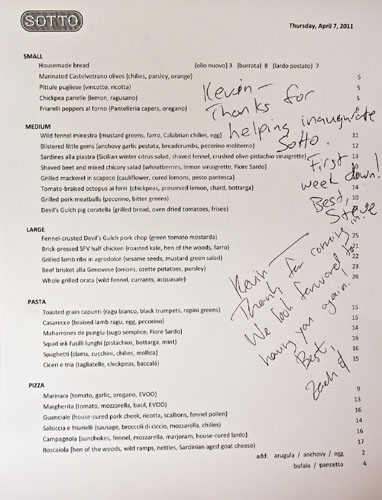 SOTTO
Thursday, April 7, 2011
SMALL
Housemade bread (olio nuovo) 3 (burrata) 8 (lardo pestato) 7
Marinated Castelvetrano olives (chilies, parsley, orange) 5
Pittule pugliese (vincotto, ricotta) 5
Chickpea panelle (lemon, ragusano) 5
Friarell peppers al forno (Pantelleria capers, oregano) 6
Kevin —
Thanks for
helping inaugurate
Sotto.
First
week down!
Best,
Steve
MEDIUM
Wild fennel minestra (mustard greens, farro, Calabrian chilies, egg) 11
Blistered little gems (anchovy garlic pestata, breadcrumbs, pecorino moliterno) 12
Sardines alla piastra (Sicilian winter citrus salad, shaved fennel, crushed olive-pistachio vinaigrette)
Shaved beet and mixed chicory salad (wheatberries, lemon vinaigrette, Fiore Sardo) 10
Grilled mackerel in scapece (cauliflower, cured lemons, pesto pantesca)
Tomato-braised octopus ai ferri (chickpeas, preserved lemon, chard, bottarga) 14
Grilled pork meatballs (pecorino, bitter greens) 10
Devil's Gulch pig coratella (grilled bread, oven dried tomatoes, frisee)
LARGE
Fennel-crusted Devil's Gulch pork chop (green tomato mostarda) 25
Brick-pressed SFV half chicken (roasted kale, hen of the woods, farro) 21
Grilled lamb ribs in agrodolce (sesame seeds, mustard green salad)
Beef brisket alla Genovese (onions, orzette potatoes, parsley) 23
Whole grilled orata (wild fennel, currants, acquasale) 26
Kevin —
Thanks for coming
in!
We look forward to
having you again.
Best,
Zach
PASTA
Toasted grain caputi (ragu bianco, black trumpets, rapini greens) 15
Casarecce (braised lamb ragu, egg, pecorino) 15
Maharrones de pungiu (sugo semplice, Fiore Sardo) 14
Squid ink fusilli lunghi (pistachios, bottarga, mint) 16
Spaghetti (clams, zucchini, chilies, mollica) 16
Ciceri e tria (tagliatelle, chickpeas, baccalà) 15
PIZZA
Marinara (tomato, garlic, oregano, EVOO) 9
Margherita (tomato, mozzarella, basil, EVOO) 13
Guanciale (house-cured pork cheek, ricotta, scallions, fennel pollen) 16
Salsiccia e friarielli (sausage, broccoli di ciccio, mozzarella, chilies) 14
Campagnola (sunchokes, fennel, mozzarella, marjoram, house-cured lardo) 16
Boscaiola (hen of the woods, wild ramps, nettles, Sardinian aged goat cheese) 17
add: arugula / anchovy / egg 2
bufala / pancetta 4